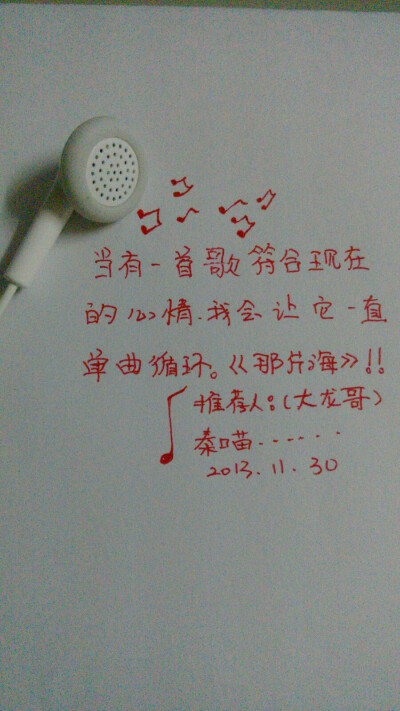 当有一首歌符合现在
的心情.我会让它一直
单曲循环。《那片海》!!
推荐人:(大龙哥)
秦喵......
2013.11.30